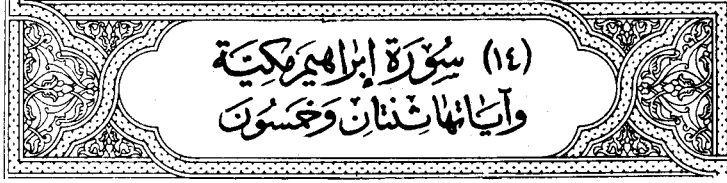 (١٤) سُوْرَةِ إِبْرَاهِيم مَكِيَّة
وَآيَاتهَا ثِنْتَانِ وَخَمْسُونَ